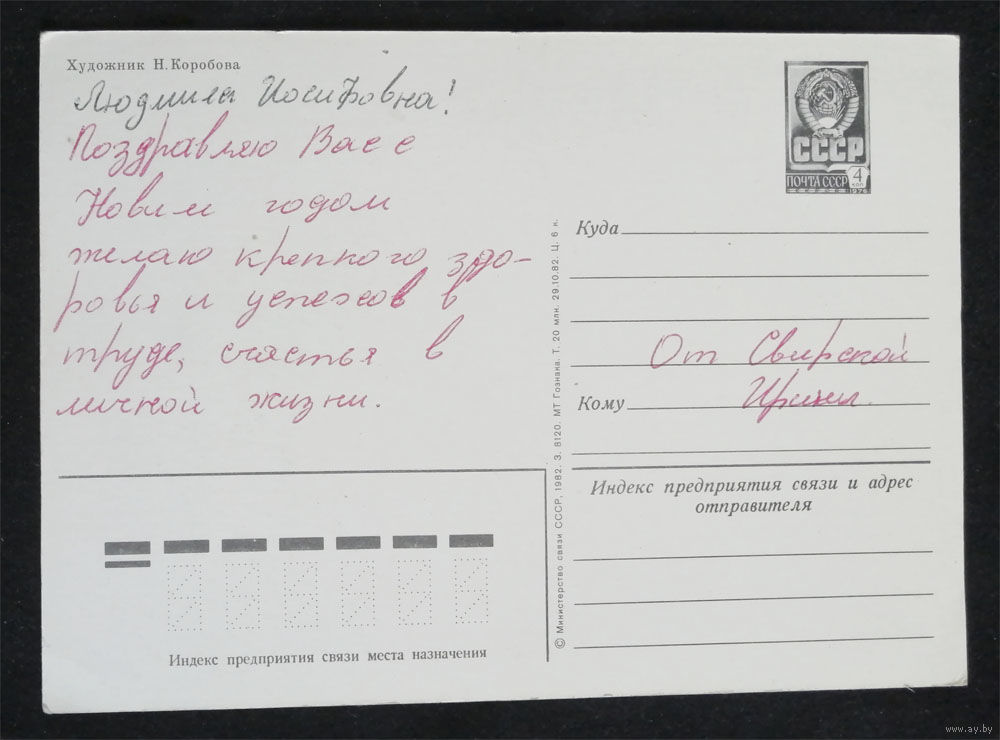 Художник Н. Коробова
Людмила Иосифовна!
Поздравляю Вас с
Новым годом
желаю крепкого здо-
ровья и успехов в
труде, счастья в
личной жизни.
СССР
ПОЧТА СССР
4
КОП
1976
Куда
От Свирской
Кому Ирины.
Индекс предприятия связи и адрес
отправителя
© Министерство связи СССР, 1982. З. 8120. МТ Гознака. Т. 20 млн. 29.10.82. Ц. 6 к.
Индекс предприятия связи места назначения
www.ay.by